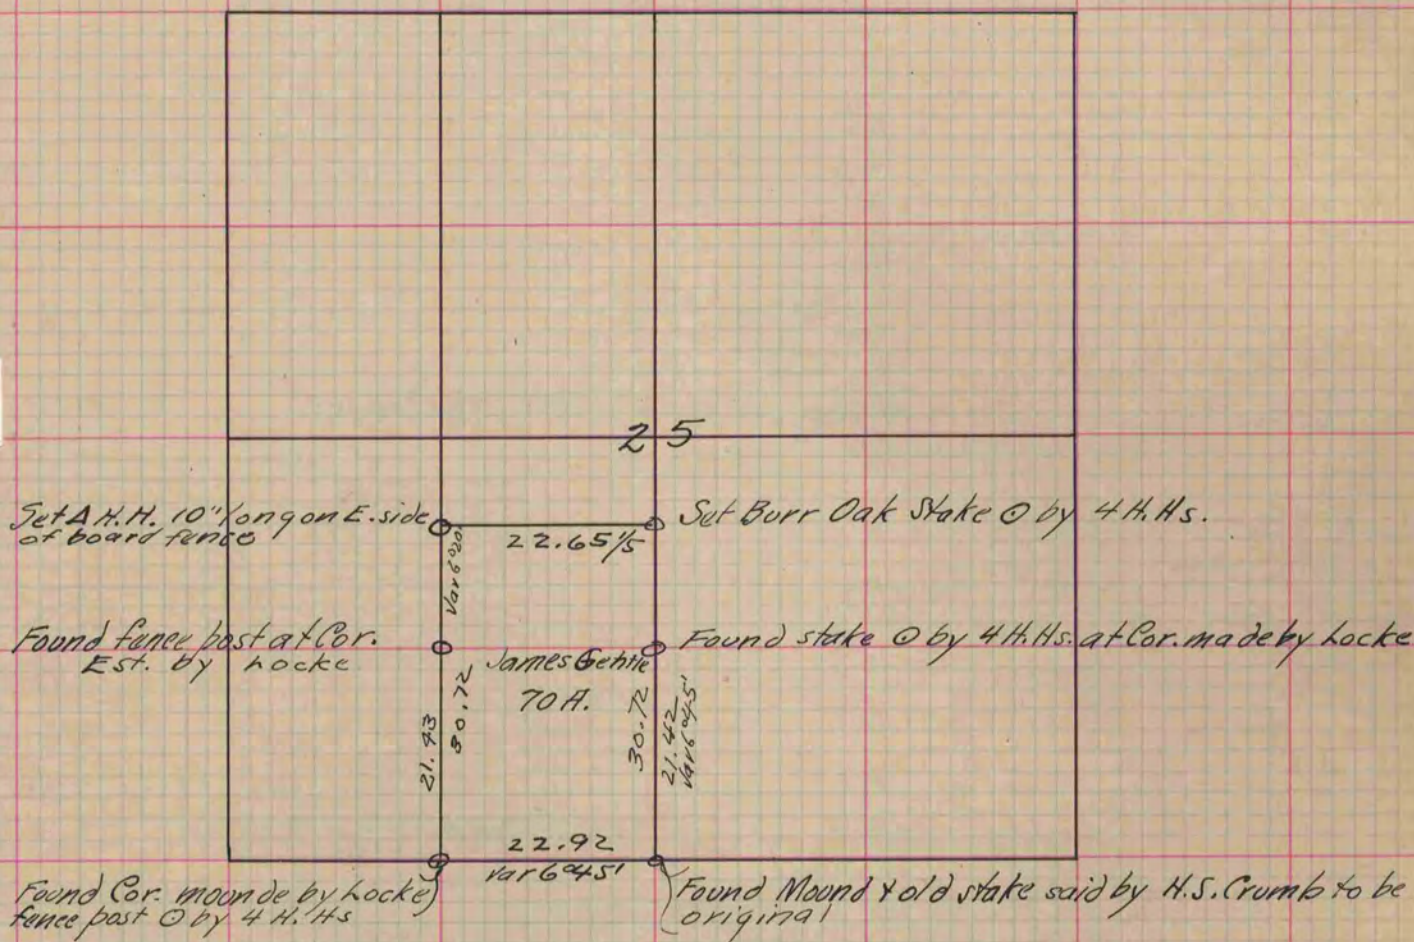 25
Set A H.H. 10" long on E. side
of board fence
Set Burr Oak Stake ⊙ by 4 H.Hs.
22.65⅕
Var 6°20'
Found fence post at Cor.
Est. by Locke
Found stake ⊙ by 4 H.Hs. at Cor. made by Locke
James Gentle
70 A.
21.43
30.72
30.72
21.42
Var 6°45'
22.92
Var 6°45'
Found Cor. mounde by Locke
fence post ⊙ by 4 H. Hs
Found Mound & old stake said by H.S. Crumb to be
original